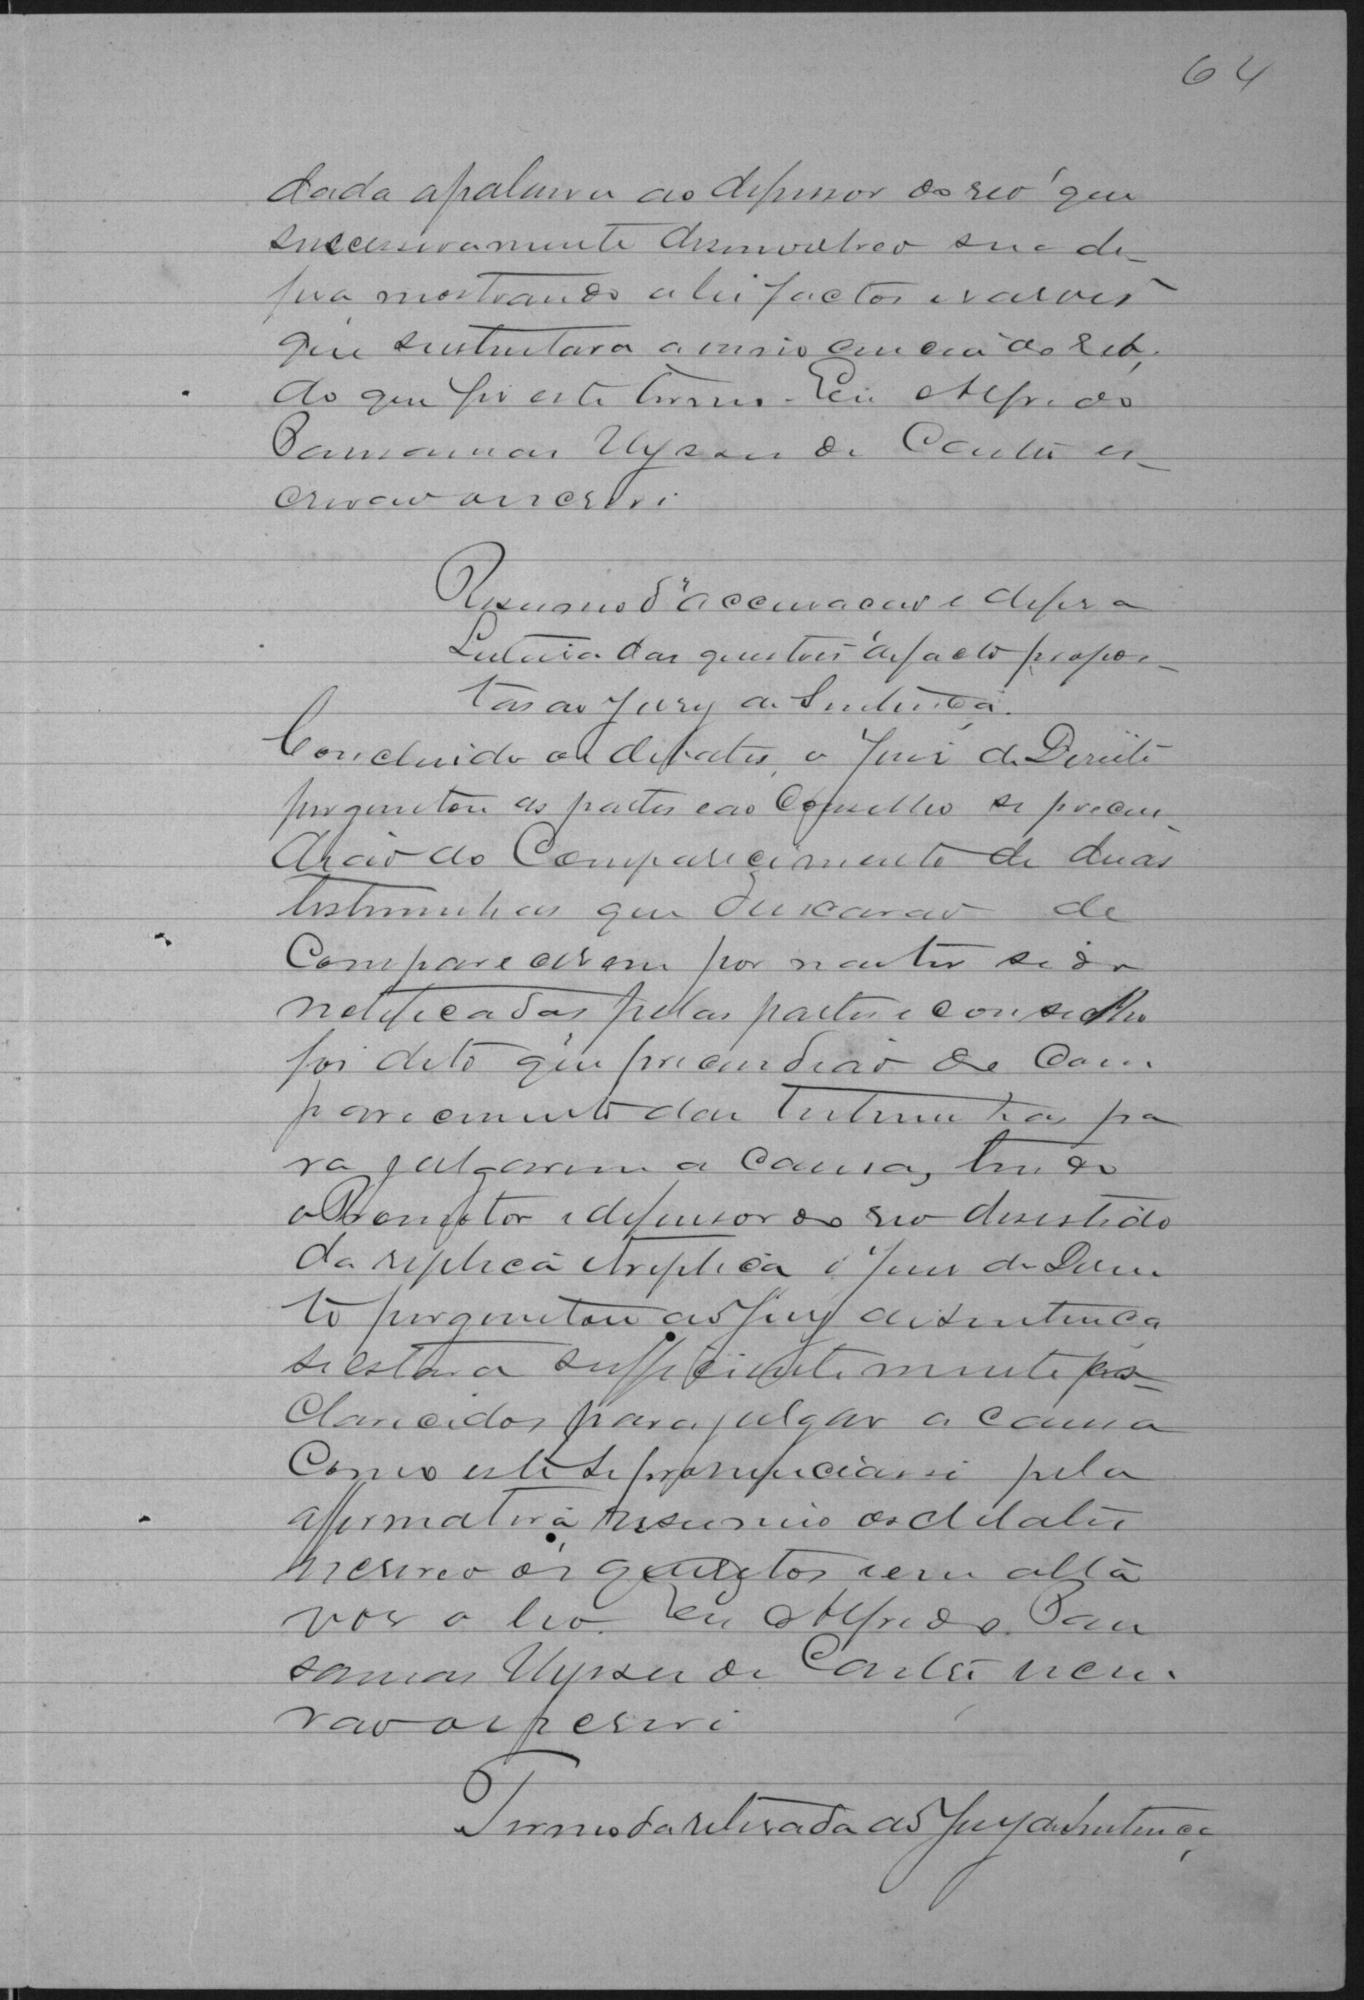 64
dada apalavra ao defensor do reo que
successivamente desenvolveo sua de-
feza mostrando a lei factos e rasoes
que sustentava a innocencia do reo,
do que fiz este termo. Eu Alfredo
Pausanias Ulysses de Couto es-
crivão o escrevi
Resumo d'accusacão e defeza
Leitura das questoes de facto propos-
tas ao Jury de Sentença.
Concluido os debates, o Juiz de Direito
perguntou as partes e ao Conselho se precin-
dião do Comparecimento de duas
testimunhas que deixarão de
Comparecerem por não ter sido
notificadas, pelas partes e conselho
foi dito que precindião do Com-
parecimento das testimunhas pa
ra julgarem a Causa, tendo
o Promotor e defensor do reo desistido
da replica e treplica o Juiz de Direi
to perguntou ao Jury de Sentença
se estava sufficientemente es-
clarecidos para julgar a causa
Como este se pronunciasse pela
affirmativa resumio os debates
escreveo os quesitos e em alta
voz o leo. Eu Alfredo Pau
sanias Ulysses de Couto escri-
vão o escrevi
Termo da retirada do Jury de Sentença